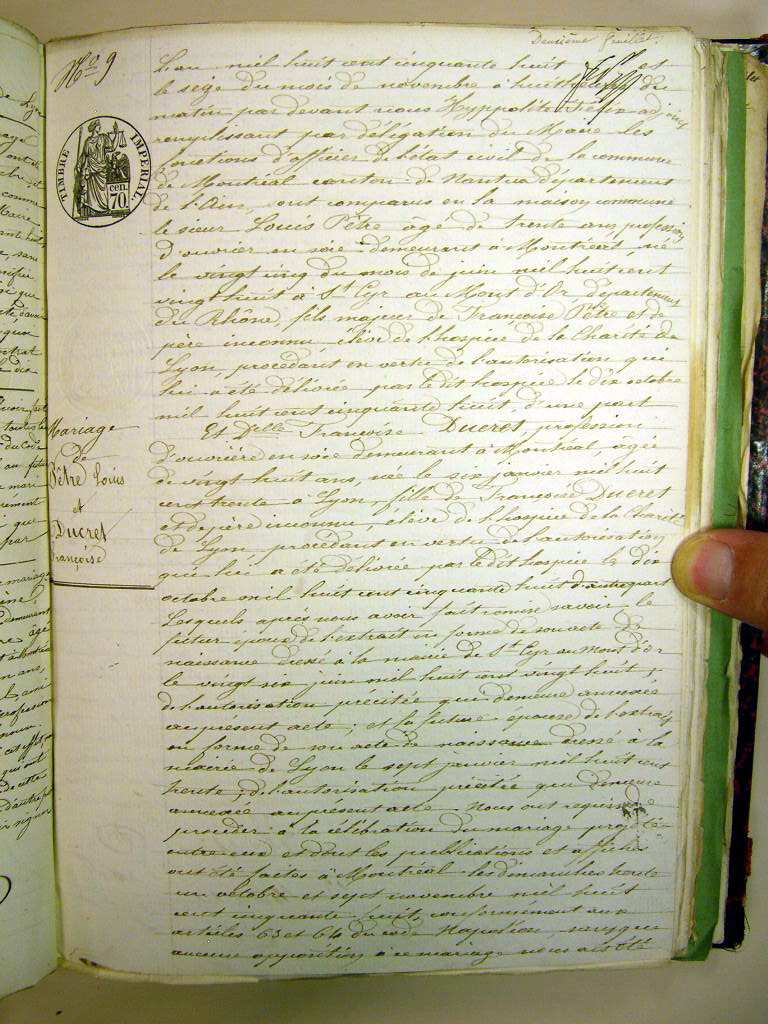 Deuxième feuillet.
No 9
TIMBRE IMPERIAL.
cen.
70
L'an mil huit cent cinquante huit et
le seize du mois de novembre à huit heures du
matin par devant nous Hyppolite adjoint
remplissant par délégation du Maire les
fonctions d'officier de l'état civil de la commune
de Montréal canton de Nantua département
de l'Ain, sont comparus en la maison commune
le sieur Louis Pêtre âgé de trente ans, profession
d'ouvrier en soie demeurant à Montréal, né
le vingt cinq du mois de juin mil huit cent
vingt huit à St Cyr au Mont d'Or département
du Rhône, fils majeur de Françoise Pêtre et de
père inconnu élève de l'hospice de la Charité de
Lyon, procédant en vertu de l'autorisation qui
lui a été délivrée par le dit hospice le dix octobre
mil huit cent cinquante huit, d'une part
Et Delle Françoise Ducret, profession
d'ouvrière en soie demeurant à Montréal, âgée
de vingt huit ans, née le six janvier mil huit
cent trente à Lyon, fille de Françoise Ducret
et de père inconnu, élève de l'hospice de la Charité
de Lyon procédant en vertu de l'autorisation
qui lui a été délivrée par le dit hospice le dix
octobre mil huit cent cinquante huit d'autre part
Lesquels après nous avoir fait remise savoir, le
futur époux de l'extrait en forme de son acte de
naissance dressé à la mairie de St Cyr au Mont d'or
le vingt six juin mil huit cent vingt huit,
de l'autorisation précitée qui demeure annexée
au présent acte; et la future épouse de l'extrait
en forme de son acte de naissance dressé à la
mairie de Lyon le sept janvier mil huit cent
trente; de l'autorisation précitée qui demeure
annexée au présent acte. Nous ont requis de
procéder à la célébration du mariage projeté
entre eux et dont les publications et affiches
ont été faites à Montréal les dimanches trente
un octobre et sept novembre mil huit
cent cinquante huit, conformément aux
articles 63 et 64 du code Napoléon, vu que
aucune opposition à ce mariage nous a été
Mariage
de
Pêtre Louis
et
Ducret
Françoise